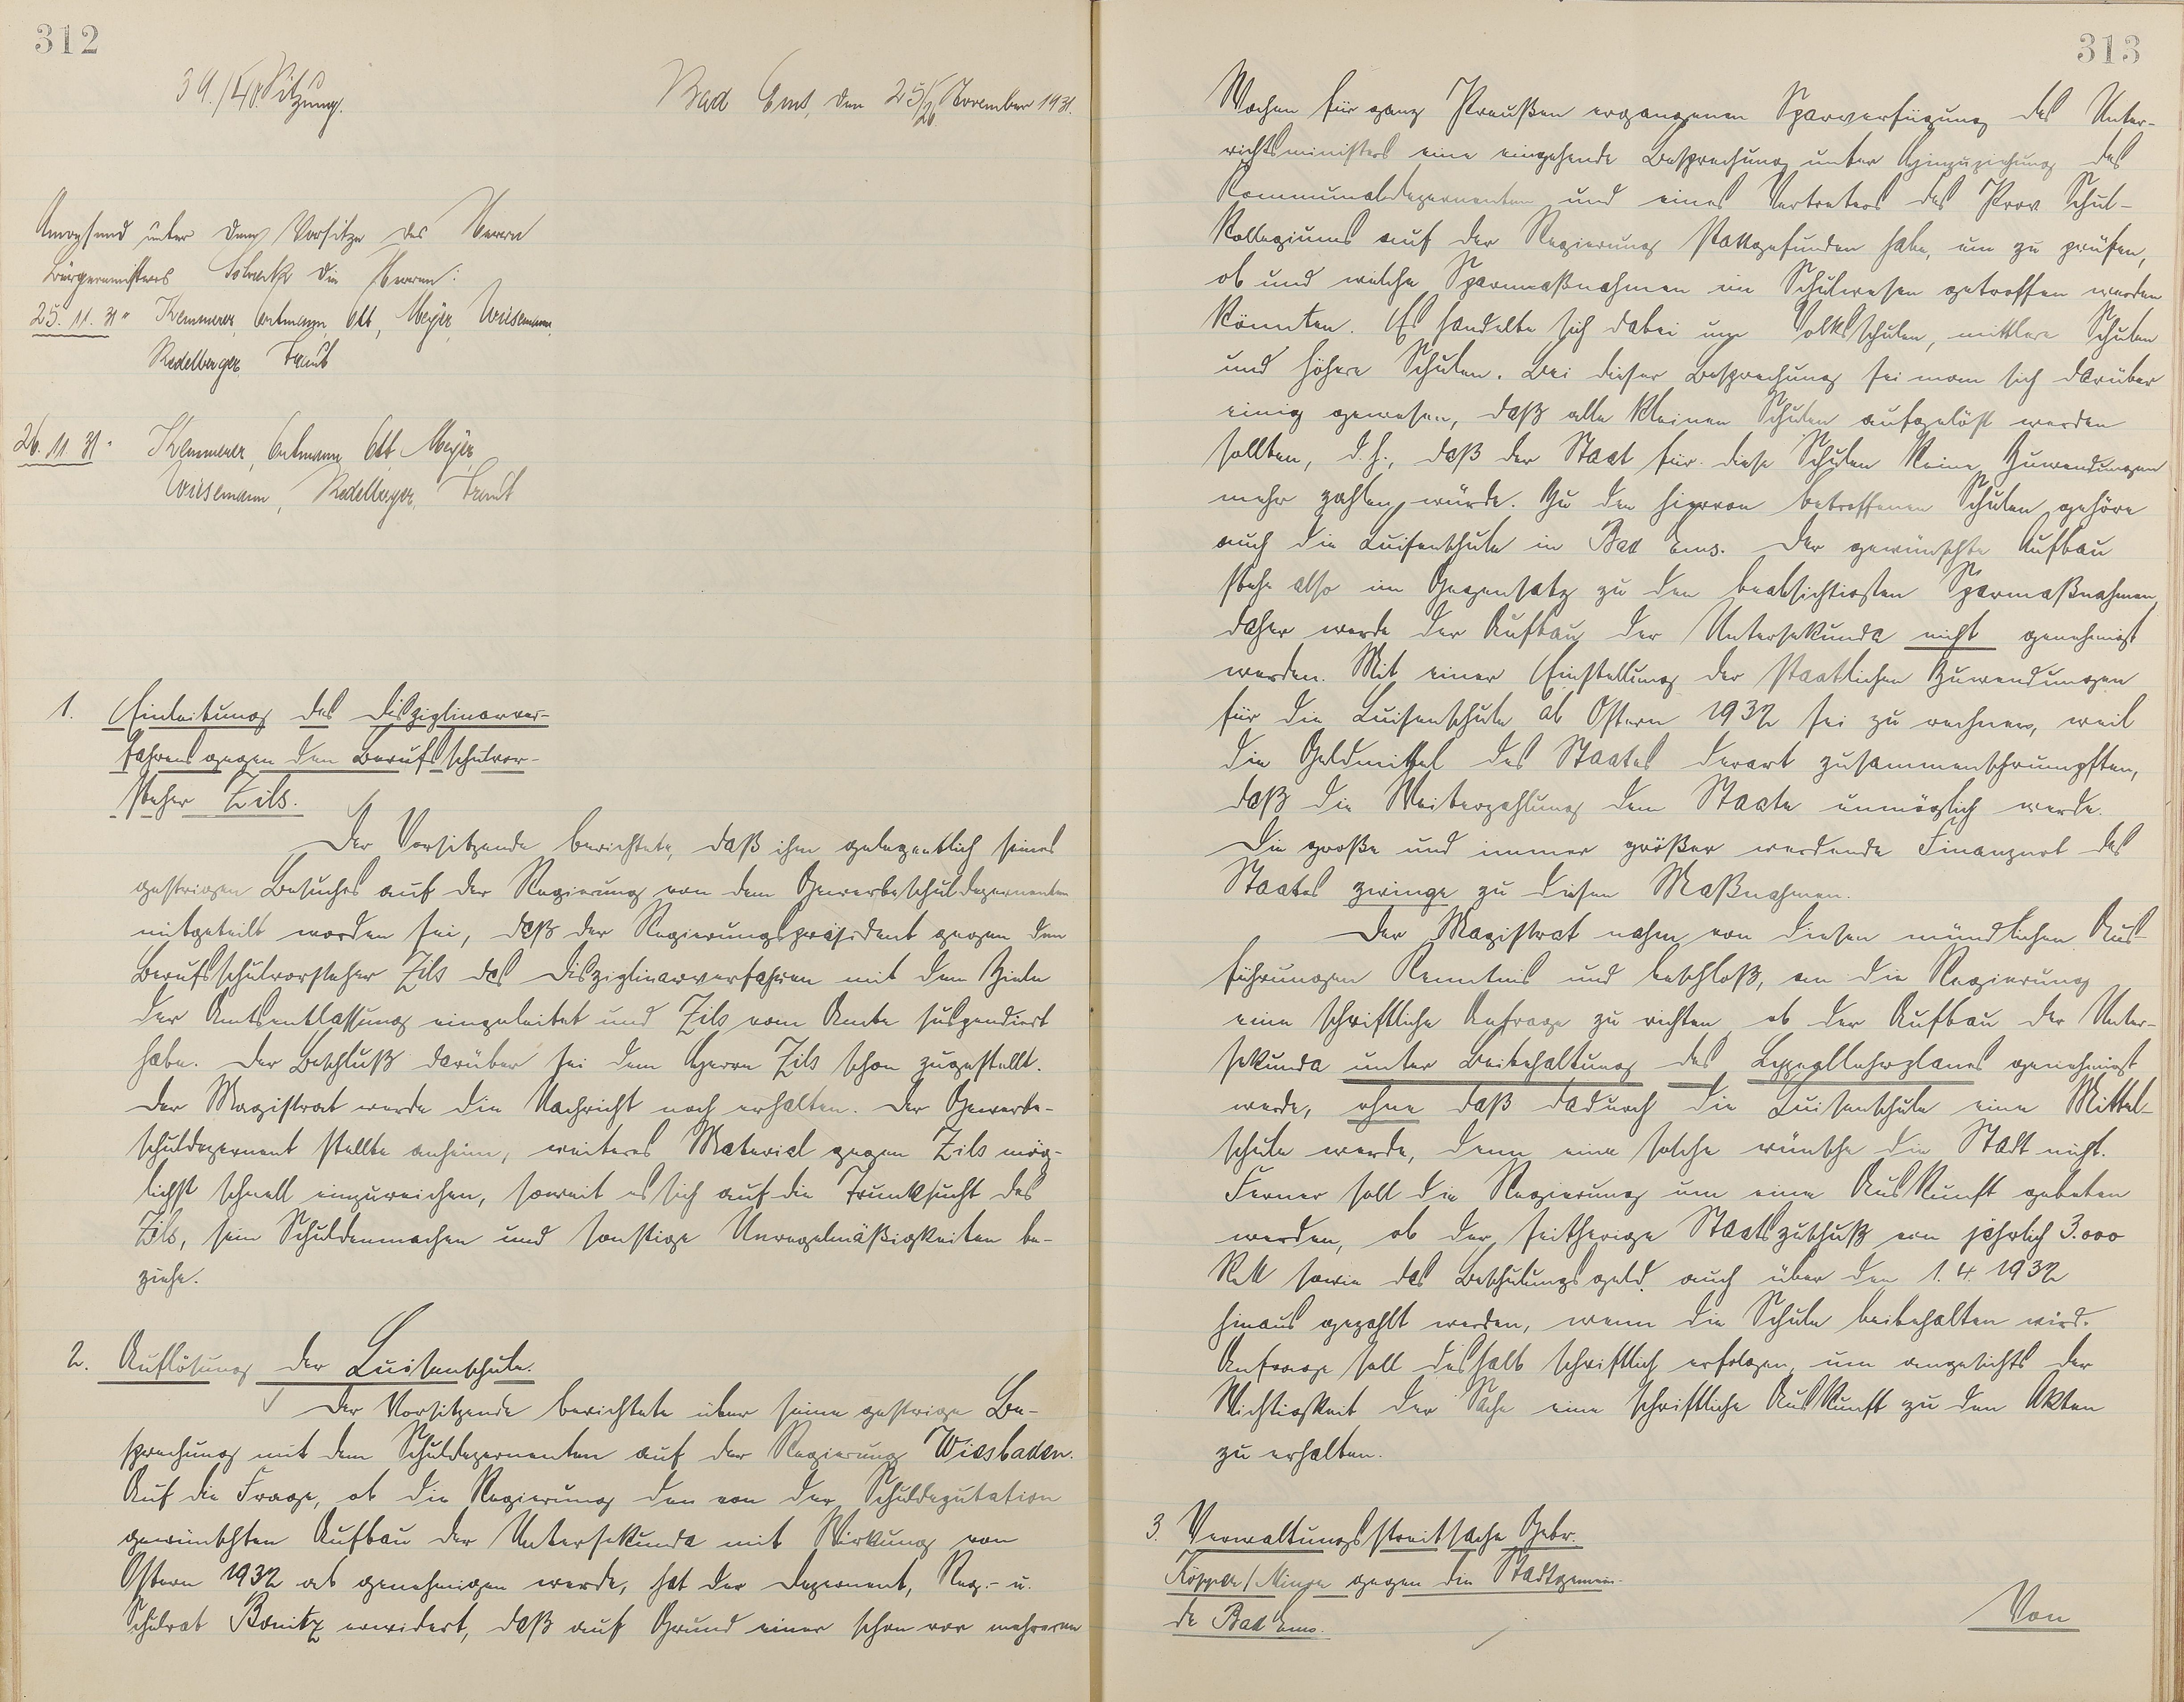 312
39./40. Sitzung.
Bad Ems, den 25/26 November 1931.
Anwesend unter dem Vorsitze des Herrn
Bürgermeisters die Herren:
25. 11. 31 " Kemmerer, Ortmann, Ott, Meyer, Wiesemann,
Redelberger,
26. 11. 31 " Kemmerer, Ortmann, Ott, Meyer,
Wiesemann, Redelberger,
1. Einleitung des Disziplinarver-
fahrens gegen den Berufsschulvor-
steher Zils.
Der Vorsitzende berichtete, daß ihm gelegentlich seines
gestrigen Besuches auf der Regierung von dem Gewerbeschuldezernenten
mitgeteilt worden sei, daß der Regierungspräsident gegen den
Berufsschulvorsteher Zils das Disziplinarverfahren mit dem Ziele
der Amtsentlassung eingeleitet und Zils vom Amte suspendiert
habe. Der Beschluß darüber sei dem Herrn Zils schon zugestellt.
Der Magistrat werde die Nachricht noch erhalten. Der Gewerbe-
schuldezernent stellte anheim, weiteres Material gegen Zils mög-
lichst schnell einzureichen, soweit es sich auf die Trunksucht des
Zils, sein Schuldenmachen und sonstige Unregelmäßigkeiten be-
ziehe.
2. Auflösung der Luisenschule.
Der Vorsitzende berichtete über seine gestrige Be-
sprechung mit dem Schuldezernenten auf der Regierung Wiesbaden.
Auf die Frage, ob die Regierung den von der Schuldeputation
gewünschten Aufbau der Untersekunda mit Wirkung von
Ostern 1932 ab genehmigen werde, hat der Dezernent, Reg.- u.
Schulrat Bonitz erwidert, daß auf Grund einer schon vor mehreren
313
Wochen für ganz Preußen ergangenen Sparverfügung des Unter-
richtsministers eine eingehende Besprechung unter Hinzuziehung des
Kommunaldezernenten und eines Vertreters des Prov Schul-
kollegiums auf der Regierung stattgefunden habe, um zu prüfen,
ob und welche Sparmaßnahmen im Schulwesen getroffen werden
könnten. Es handelte sich dabei um Volksschulen, mittlere Schulen
und höhere Schulen. Bei dieser Besprechung sei man sich darüber
einig gewesen, daß alle kleinen Schulen aufgelöst werden
sollten, d.h., daß der Staat für diese Schulen keine Zuwendungen
mehr zahlen würde. Zu den hiervon betroffenen Schulen gehöre
auch die Luisenschule in Bad Ems. Der gewünschte Aufbau
stehe also im Gegensatz zu den beabsichtigten Sparmaßnahmen,
daher werde der Aufbau der Untersekunda nicht genehmigt
werden. Mit einer Einstellung der staatlichen Zuwendungen
für die Luisenschule ab Ostern 1932 sei zu rechnen, weil
die Geldmittel des Staates derart zusammenschrumpften,
daß die Weiterzahlung dem Staate unmöglich werde.
Die große und immer größer werdende Finanznot des
Staates zwinge zu diesen Maßnahmen.
Der Magistrat nahm von diesen mündlichen Aus-
führungen Kenntnis und beschloß, an die Regierung
eine schriftliche Anfrage zu richten, ob der Aufbau der Unter-
sekunda unter Beibehaltung des Lyzeallehrplanes genehmigt
werde, ohne daß dadurch die Luisenschule eine Mittel-
schule werde, denn eine solche wünsche die Stadt nicht.
Ferner soll die Regierung um eine Auskunft gebeten
werden, ob der seitherige Staatszuschuß von jährlich 3.000
RM sowie das Beschulungsgeld auch über den 1. 4. 1932
hinaus gezahlt werden, wenn die Schule beibehalten wird.
Anfrage soll deshalb schriftlich erfolgen, um angesichts der
Wichtigkeit der Sache eine schriftliche Auskunft zu den Akten
zu erhalten.
3. Verwaltungsstreitsache Gebr.
gegen die Stadtgemein-
de Bad Ems.
Von